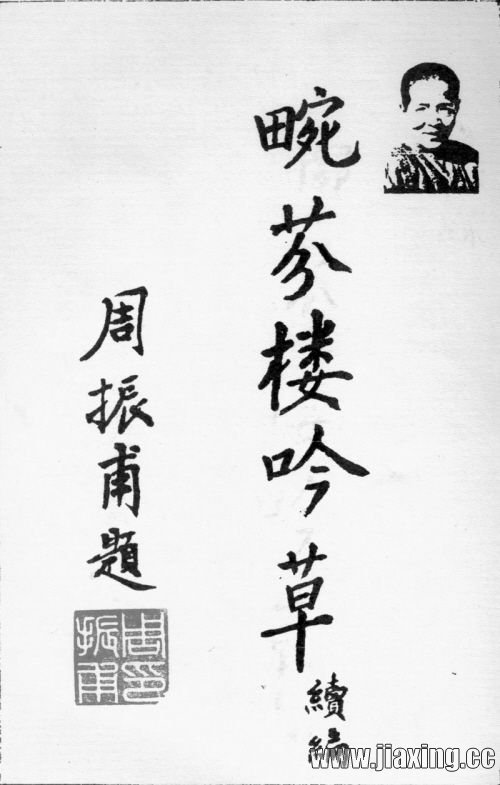 畹芬楼吟草
續編
周振甫題
周振甫印
www.jiaxing.cc